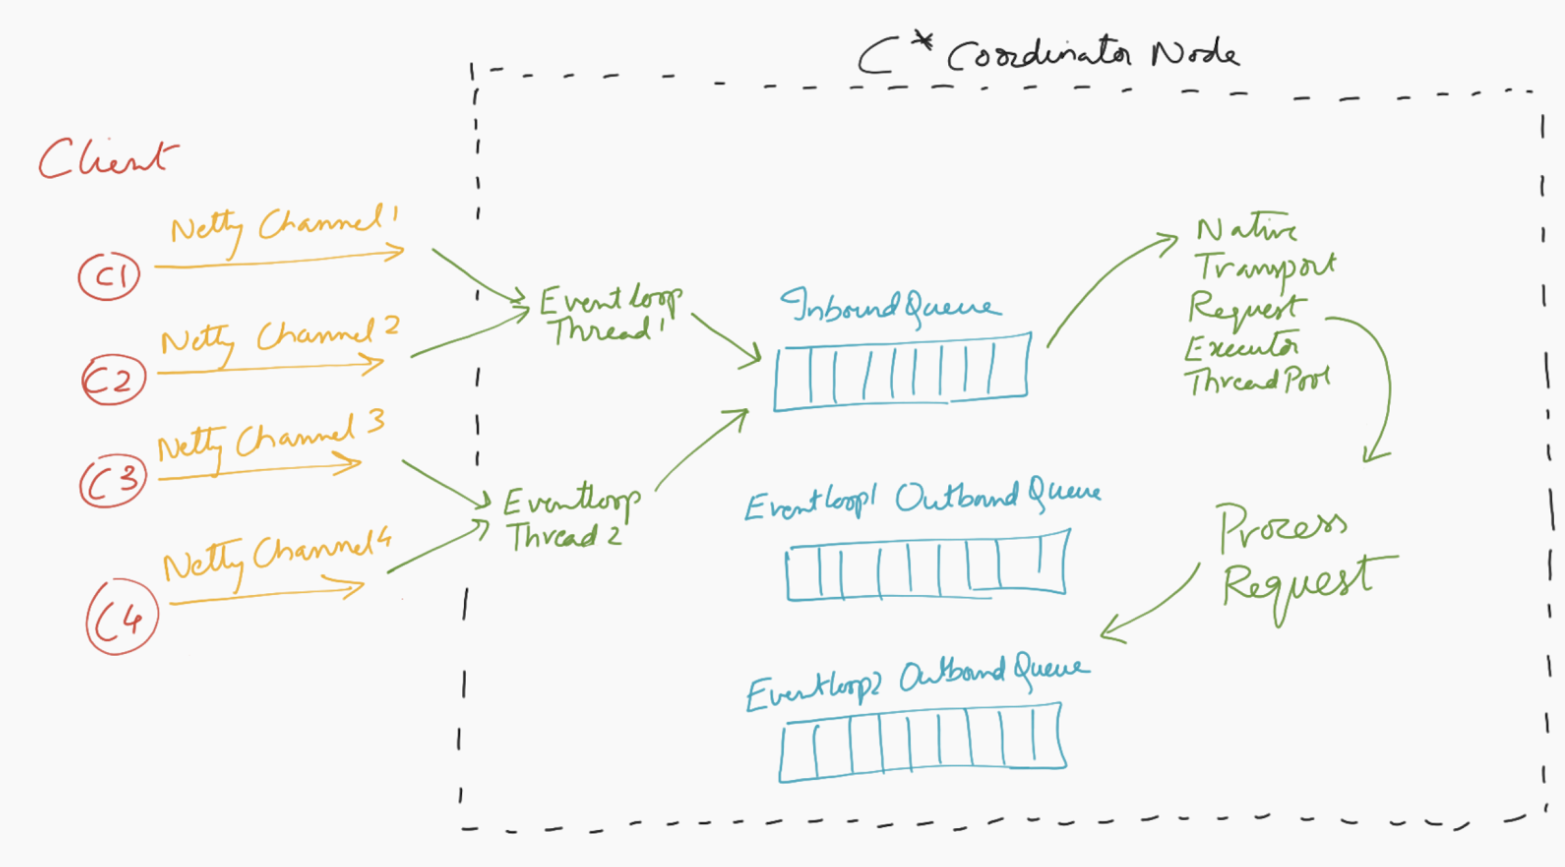 C* Coordinator Node
Client
Netty Channel 1
C1
Netty Channel 2
C2
Netty Channel 3
C3
Netty Channel 4
C4
Eventloop
Thread 1
Eventloop
Thread 2
Inbound Queue
Eventloop1 Outbound Queue
Eventloop2 Outbound Queue
Native
Transport
Request
Executor
ThreadPool
Process
Request